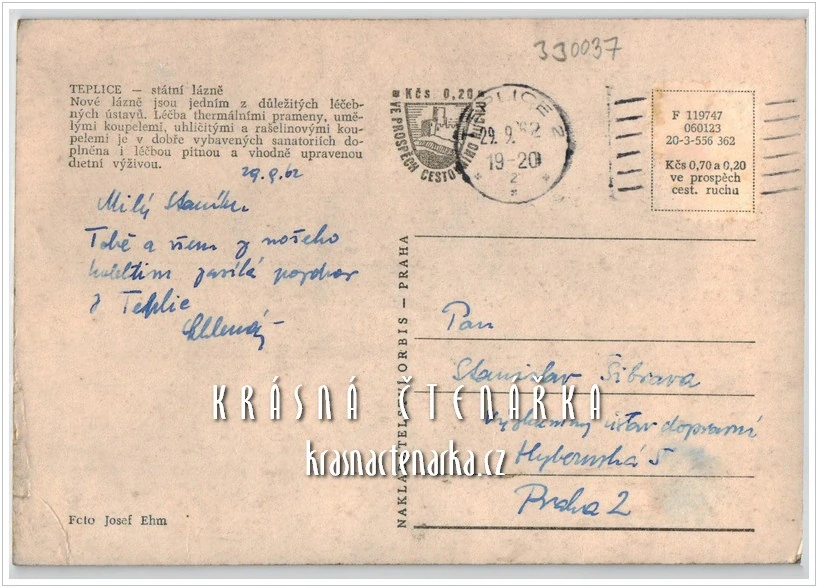 330037
TEPLICE — státní lázně
Nové lázně jsou jedním z důležitých léčeb-
ných ústavů. Léčba thermálními prameny, umě-
lými koupelemi, uhličitými a rašelinovými kou-
pelemi je v dobře vybavených sanatoriích do-
plněna i léčbou pitnou a vhodně upravenou
dietní výživou.
Kčs 0,20
VE PROSPĚCH CESTOVNÍHO RUCHU
TEPLICE 2
29. 9. 62
19-20
2
F 119747
060123
20-3-556 362
Kčs 0,70 a 0,20
ve prospěch
cest. ruchu
29.9.62
Milý Staníku
Tobě a všem z našeho
kolektivu zasílá pozdrav
z Teplic
NAKLADATELSTVÍ ORBIS — PRAHA
Pan
Stanislav Šibrava
Výzkumný ústav dopravní
Hybernská 5
Praha 2
KRÁSNÁ ČTENÁŘKA
krasnactenarka.cz
Foto Josef Ehm